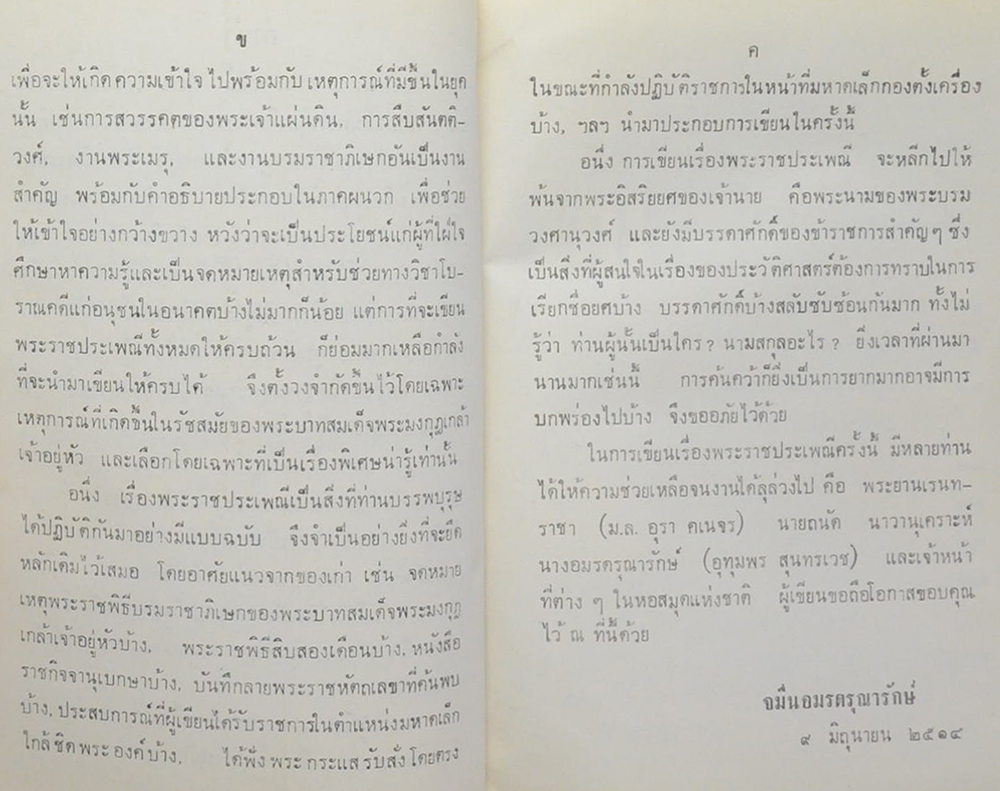 ข
เพื่อจะให้เกิดความเข้าใจไปพร้อมกับเหตุการณ์ที่มีขึ้นในยุค
นั้น เช่นการสวรรคตของพระเจ้าแผ่นดิน, การสืบสันตติ-
วงศ์, งานพระเมรุ, และงานบรมราชาภิเษกอันเป็นงาน
สำคัญ พร้อมกับคำอธิบายประกอบในภาคผนวก เพื่อช่วย
ให้เข้าใจอย่างกว้างขวาง หวังว่าจะเป็นประโยชน์แก่ผู้ที่ใฝ่ใจ
ศึกษาหาความรู้และเป็นจดหมายเหตุสำหรับช่วยทางวิชาโบ-
ราณคดีแก่อนุชนในอนาคตบ้างไม่มากก็น้อย แต่การที่จะเขียน
พระราชประเพณีทั้งหมดให้ครบถ้วน ก็ย่อมมากเหลือกำลัง
ที่จะนำมาเขียนให้ครบได้ จึงตั้งวงจำกัดขึ้นไว้โดยเฉพาะ
เหตุการณ์ที่เกิดขึ้นในรัชสมัยของพระบาทสมเด็จพระมงกุฎเกล้า
เจ้าอยู่หัว และเลือกโดยเฉพาะที่เป็นเรื่องพิเศษน่ารู้เท่านั้น
อนึ่ง เรื่องพระราชประเพณีเป็นสิ่งที่ท่านบรรพบุรุษ
ได้ปฏิบัติกันมาอย่างมีแบบฉบับ จึงจำเป็นอย่างยิ่งที่จะยึด
หลักเดิมไว้เสมอ โดยอาศัยแนวจากของเก่า เช่น จดหมาย
เหตุพระราชพิธีบรมราชาภิเษกของพระบาทสมเด็จพระมงกุฎ
เกล้าเจ้าอยู่หัวบ้าง, พระราชพิธีสิบสองเดือนบ้าง, หนังสือ
ราชกิจจานุเบกษาบ้าง, บันทึกลายพระราชหัตถเลขาที่ค้นพบ
บ้าง, ประสบการณ์ที่ผู้เขียนได้รับราชการในตำแหน่งมหาดเล็ก
ใกล้ชิดพระองค์บ้าง, ได้ฟังพระกระแสรับสั่งโดยตรง
ค
ในขณะที่กำลังปฏิบัติราชการในหน้าที่มหาดเล็กกองตั้งเครื่อง
บ้าง, ฯลฯ นำมาประกอบการเขียนในครั้งนี้
อนึ่ง การเขียนเรื่องพระราชประเพณี จะหลีกไปให้
พ้นจากพระอิสริยยศของเจ้านาย คือพระนามของพระบรม
วงศานุวงศ์ และยังมีบรรดาศักดิ์ของข้าราชการสำคัญๆ ซึ่ง
เป็นสิ่งที่ผู้สนใจในเรื่องของประวัติศาสตร์ต้องการทราบในการ
เรียกชื่อยศบ้าง บรรดาศักดิ์บ้างสลับซับซ้อนกันมาก ทั้งไม่
รู้ว่า ท่านผู้นั้นเป็นใคร? นามสกุลอะไร? ยิ่งเวลาที่ผ่านมา
นานมากเช่นนี้ การค้นคว้าก็ยิ่งเป็นการยากมากอาจมีการ
บกพร่องไปบ้าง จึงขออภัยไว้ด้วย
ในการเขียนเรื่องพระราชประเพณีครั้งนี้ มีหลายท่าน
ได้ให้ความช่วยเหลือจนงานได้ลุล่วงไป คือ พระยานเรนท-
ราชา (ม.ล. อุรา คเนจร) นายถนัด นาวานุเคราะห์
นางอมรดรุณารักษ์ (อุทุมพร สุนทรเวช) และเจ้าหน้า
ที่ต่าง ๆ ในหอสมุดแห่งชาติ ผู้เขียนขอถือโอกาสขอบคุณ
ไว้ ณ ที่นี้ด้วย
จมื่นอมรดรุณารักษ์
๙ มิถุนายน ๒๕๑๔